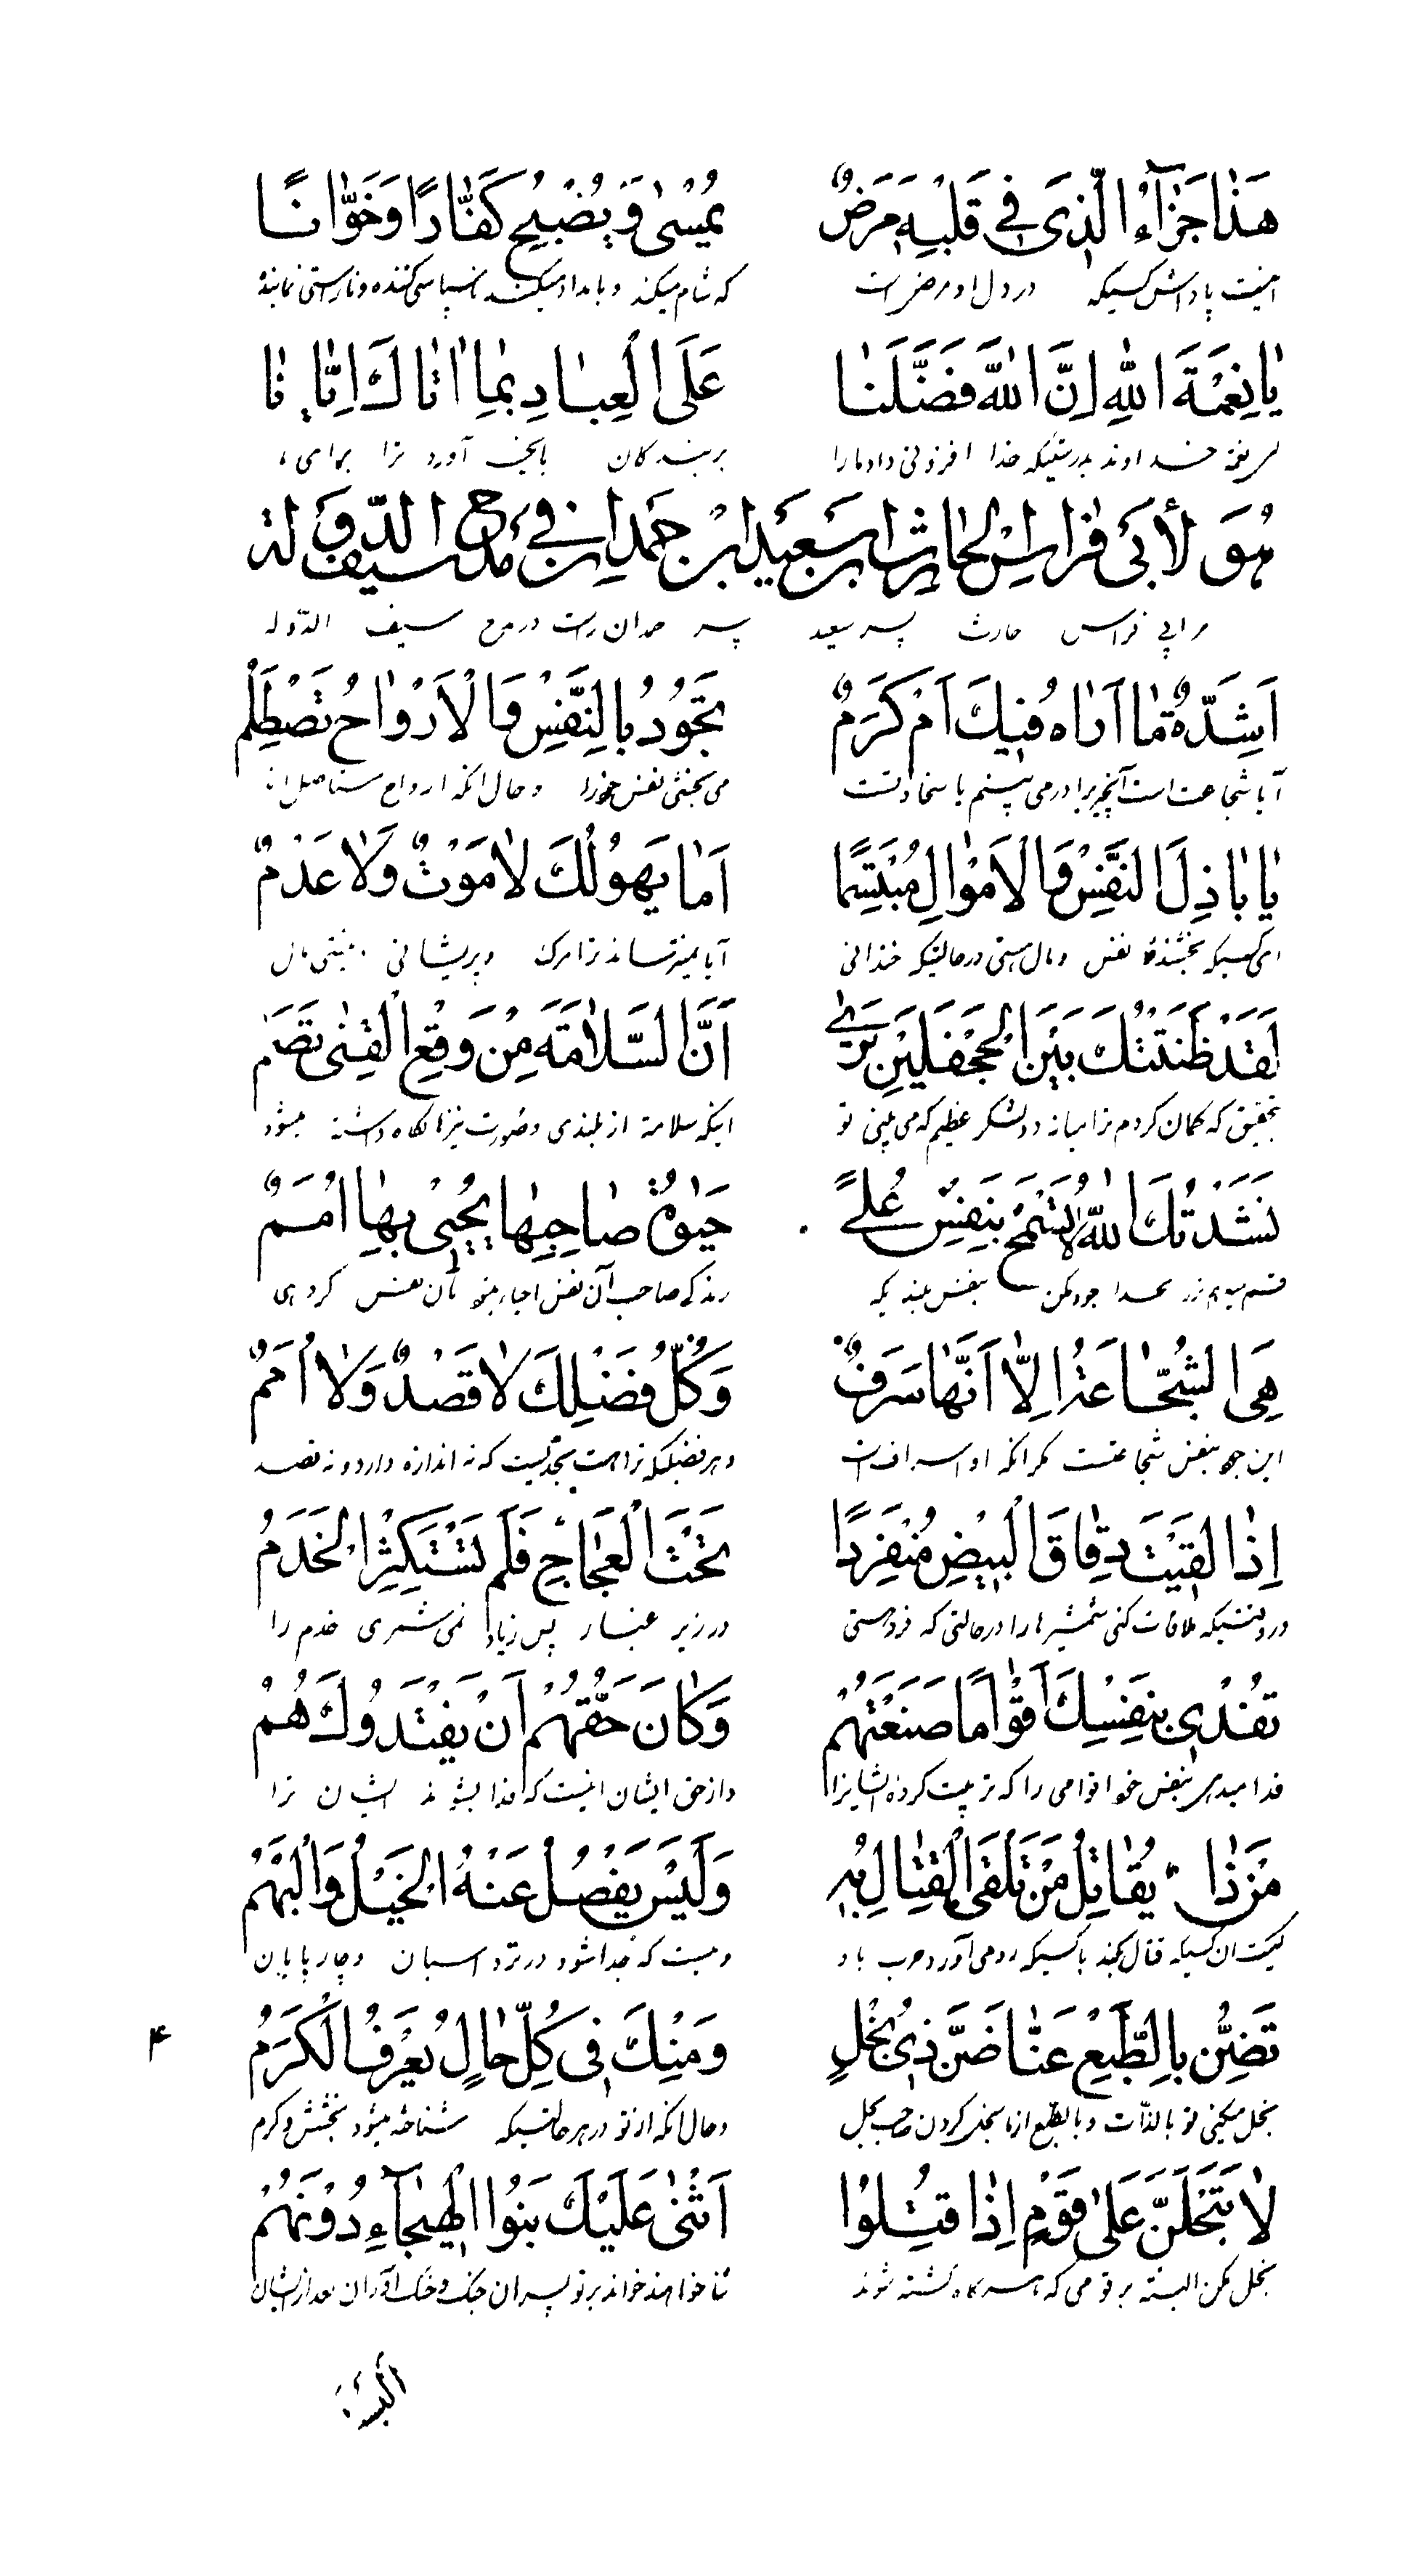 هٰذا جَزٰآءُ الَّذِی فِی قَلْبِهِ مَرَضٌ یُمْسیٰ وَ یُصْبِحُ کَفّٰارًا وَخَوّٰانًا
اینست پاداش کسیکه در دل او مرض است که شام میکند و بامداد میکند ناسپاسی کننده و ناراستی نماینده
یٰا نِعْمَةَ اللّٰهِ اِنَّ اللّٰهَ فَضَّلَنٰا عَلَی الْعِبٰادِ بِمٰا اٰتٰاكَ اِیّٰانٰا
ای نعمة خداوند بدرستیکه خدا افزونی داد ما را بر بندگان بآنچه آورد ترا برای ما
هُوَ لِأَبی فِراسِ الْحٰارِثِ ابْنِ سَعیدِ ابْنِ حَمْدانَ فِی مَدْحِ سَیْفِ الدَّوْلَة
مر ابی فراس حارث پسر سعید پسر حمدان راست در مدح سیف الدّوله
اَشِدَّةٌ مٰا اَرٰاهُ فیكَ اَمْ کَرَمٌ تَجُودُ بِالنَّفْسِ وَالْاَرْوٰاحُ تَصْطَلِمُ
آیا شجاعت است آنچیزیرا در می بینم یا سخاوتست می بخشی نفس خود را و حال آنکه ارواح مستاصل اند
یٰا بٰاذِلَ النَّفْسِ وَالْاَمْوٰالِ مُبْتَسِمًا اَمٰا یَهُولُكَ لٰا مَوْتٌ وَلٰا عَدَمٌ
ای کسیکه بخشندهٔ نفس و مال هستی در حالتیکه خندانی آیا نمیترساند ترا مرگ و پریشانی و نیستی مال
لَقَدْ ظَنَنْتُكَ بَیْنَ الْجَحْفَلَیْنِ تَرٰی اَنَّ السَّلٰامَةَ مِنْ وَقْعِ الْقَنٰی تَصَمُ
بتحقیق که گمان کردم ترا میانه دو لشکر عظیم که می بینی تو اینکه سلامة از بلندی و صورت نیزه نگاه داشته میشود
نَشَدْتُكَ اللّٰهَ لٰا تَسْمَحْ بِنَفْسِ عُلیً حَیٰوةُ صٰاحِبِهٰا یُحْیی بِهٰا اُمَمٌ
قسم میدهم ترا بخدا جود مکن بنفس بلندیکه زندگی صاحب آن نفس احیا میشود بآن نفس گروهی
هِیَ الشُّجٰاعَةُ اِلّٰا اَنَّهٰا سَرَفٌ وَکُلُّ فَضْلِكَ لٰا قَصْدٌ وَلٰا اُمَمٌ
این جود بنفس شجاعتست مگر آنکه او اسراف است و هر فضلیکه ترا هست بحدیست که نه اندازه دارد و نه قصد
اِذٰا لَقیتَ دِقٰاقَ الْبیضِ مُنْفَرِدًا تَحْتَ الْعَجٰاجِ فَلَمْ تَسْتَکْثِرِ الْخَدَمُ
در وقتیکه ملاقات کنی شمشیرها را در حالتی که فرد هستی در زیر غبار پس زیاد نمی شمری خدم را
تَفْدی بِنَفْسِكَ اَقْوٰامًا صَنَعْتَهُمْ وَکٰانَ حَقُّهُمُ اَنْ یَفْتَدُوكَ هُمْ
فدا میدهی بنفس خود اقوامی را که تربیت کرده ایشانرا و از حق ایشان اینست که فدا بشوند ایشان ترا
مَنْ ذٰا یُقٰاتِلُ مَنْ تَلْقَی الْقِتٰالَ بِهِ وَلَیْسَ یَفْصُلُ عَنْهُ الْخَیْلُ وَالْبُهَمُ
کیست آن کسیکه قتال کند با کسیکه رو می آورد حرب باو و نیست که جدا شود در نزد اسبان و چارپایان
تَضِنُّ بِالطَّبْعِ عَنّٰا ضَنَّ ذی بُخْلٍ وَمِنْكَ فی کُلِّ حٰالٍ یُعْرَفُ الْکَرَمُ
بخل میکنی تو بالذات و بالطبع از ما بخل کردن صاحب بخل و حال آنکه از تو در هر حالتیکه شناخته میشود بخشش و کرم
۴
لٰا تَبْخَلَنَّ عَلیٰ قَوْمٍ اِذٰا قُتِلُوا اَثْنیٰ عَلَیْكَ بَنُوا الْهَیْجٰآءِ دُونَهُمْ
بخل مکن البته بر قومی که هرگاه کشته شوند ثنا خواهند خواند بر تو پسران جنگ و جنگ آوران بعد از ایشان